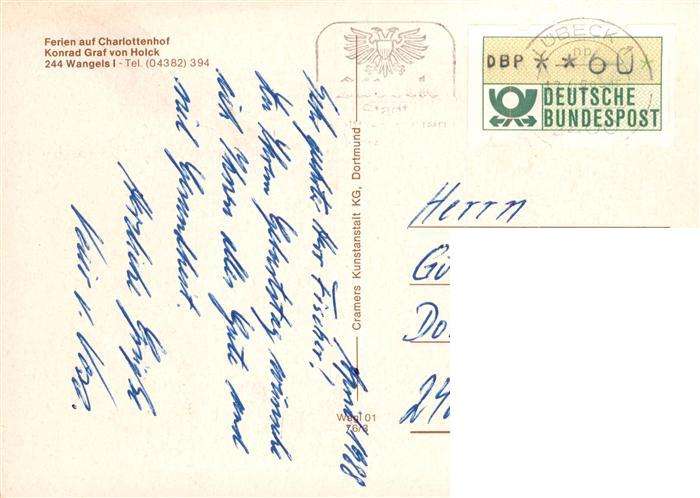 Ferien auf Charlottenhof
Konrad Graf von Holck
244 Wangels I - Tel. (04382) 394
LÜBECK
DBP **60*
DEUTSCHE
BUNDESPOST
Sehr geehrter Herr Fischer!
April 1988
Zu Ihrem Geburtstag wünsche
ich Ihnen alles Gute und
viel Gesundheit.
Herzliche Grüße
Cramers Kunstanstalt KG, Dortmund
Wagl 01
76/3
Herrn